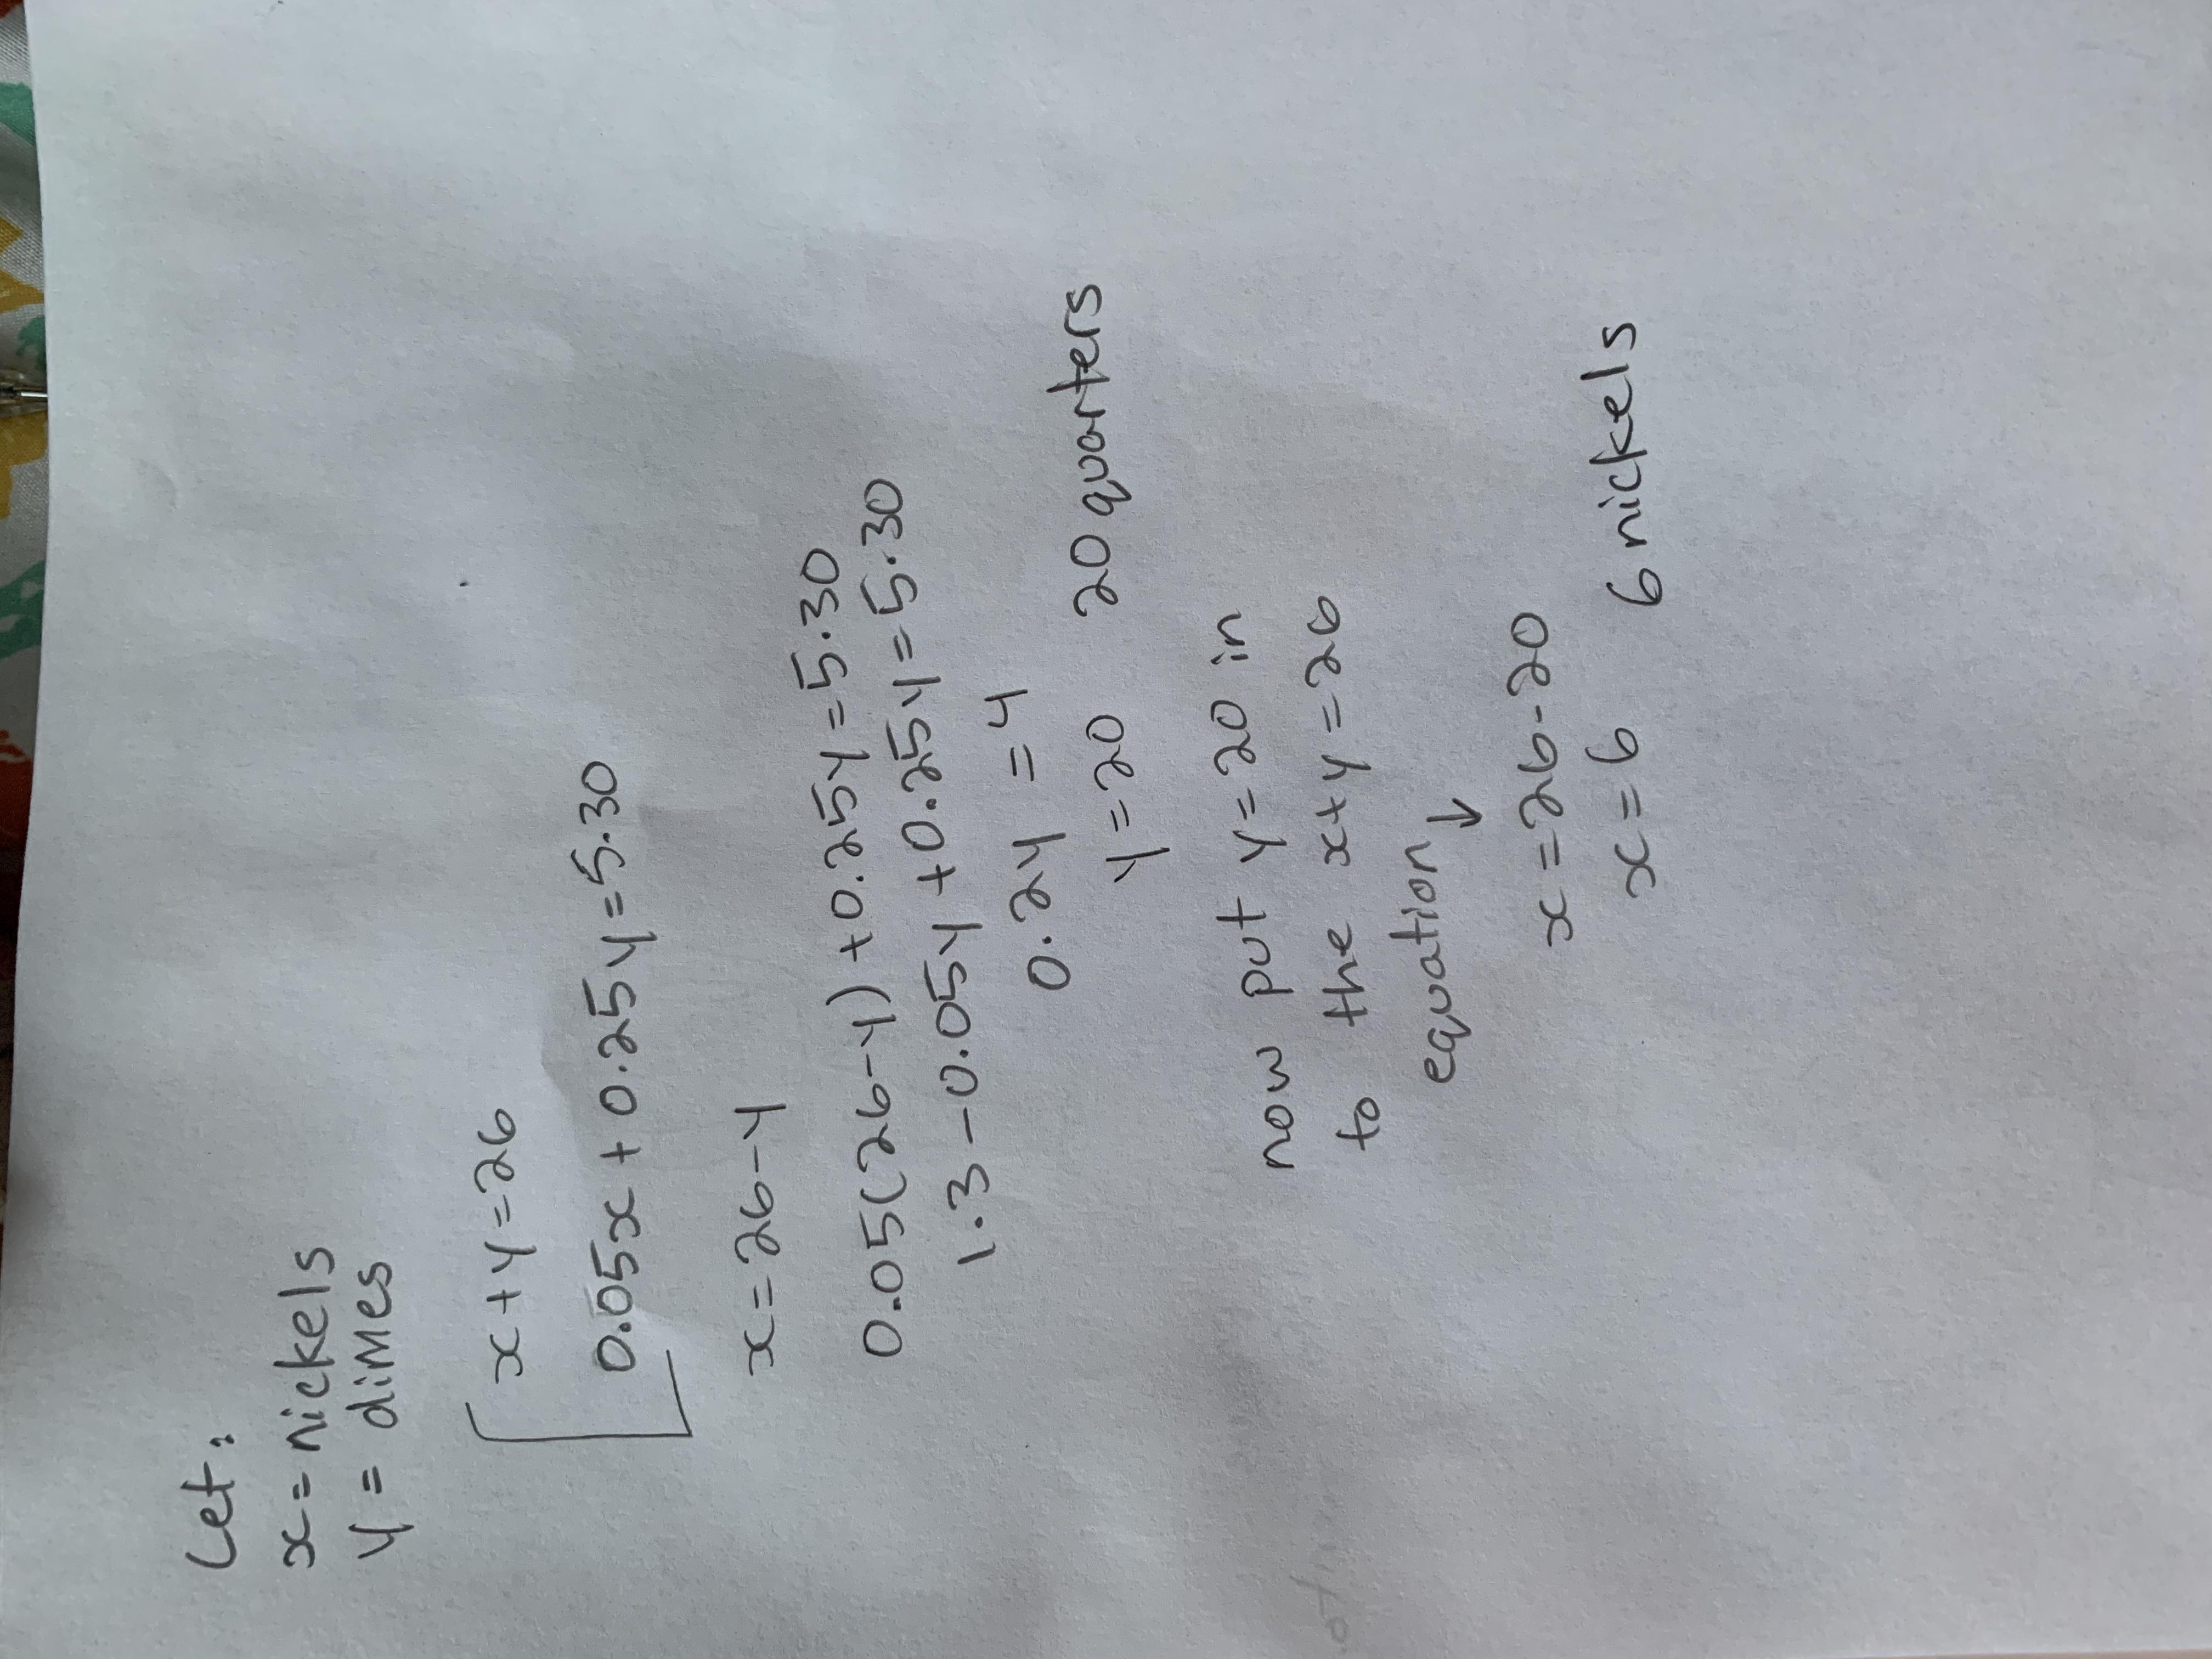 Let:
x = nickels
y = dimes
x + y = 26
0.05x + 0.25y = 5.30
x = 26 - y
0.05(26 - y) + 0.25y = 5.30
1.3 - 0.05y + 0.25y = 5.30
0.2y = 4
y = 20 20 quarters
now put y = 20 in
to the x + y = 26
equation ↓
x = 26 - 20
x = 6 6 nickels